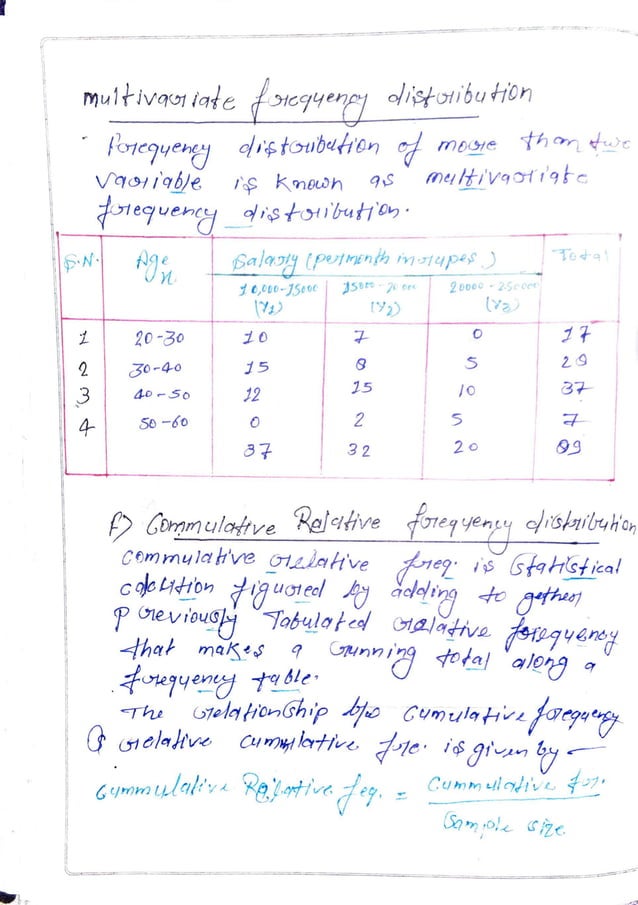 multivariate frequency distribution
Frequency distribution of more than two
variable is known as multivariate
frequency distribution.
S.N. Age x Salary (per month in rupes) Total
10,000-15000 (Y1) 15000-20000 (Y2) 20000-250000 (Y3)
1 20-30 10 7 0 17
2 30-40 15 8 5 28
3 40-50 12 15 10 37
4 50-60 0 2 5 7
37 32 20 89
f) Commulative Relative frequency distribution
Commulative relative freq. is Statistical
figured by adding to gether
Previously Tabulated relative frequency
that makes a running total along a
frequency table.
The relationship b/w Cumulative frequency
& relative cummlative fre. is given by -
Cummulative Relative feq. = Cummulative for.
Sample size